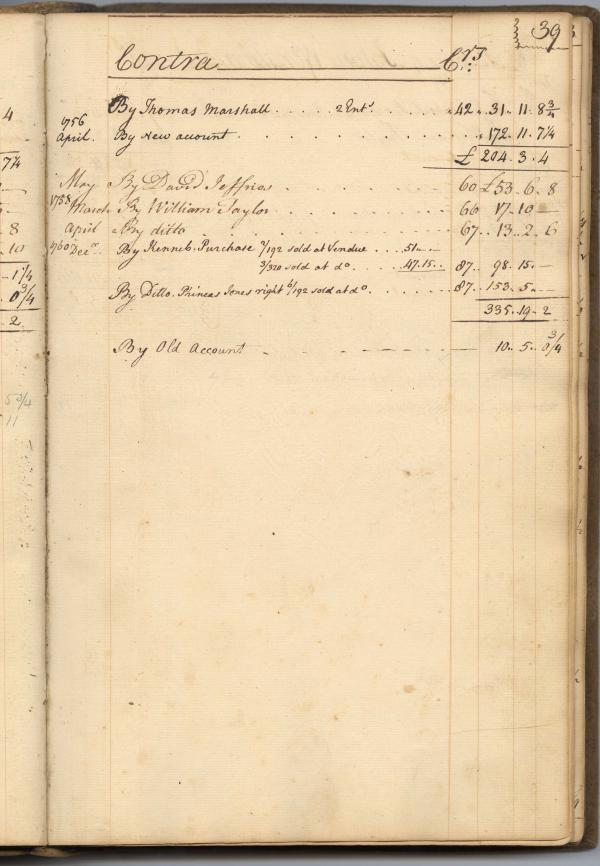 39
Contra Cr.
By Thomas Marshall . . . . . 2 Ents 42 .. 31 .. 11 .. 8 3/4
1756
April. By New account . . . . . . . . . 172 .. 11 .. 7 1/4
£ 204 .. 3 .. 4
May By David Jeffries . . . . . . . 60 £ 53 .. 6 .. 8
1758 March By William Taylor . . . . . . . 66 17 .. 10 —
April By ditto . . . . . . . . 67 .. 13 .. 2 .. 6
1760 Decr. By Kenneb. Purchase 7/192 sold at Vendue . . . 51 .. — .. —
3/320 sold at do . . . . 47 .. 15 .. 87 .. 98 .. 15 .. —
By Ditto. Phineas Jones right 6/192 sold at do . . . . . 87 .. 153 .. 5 .. —
335 .. 19 .. 2
By Old Account 10 .. 5 .. 0 3/4
4
7 1/4
8
10
1 1/4
0 3/4
2
5 3/4
11